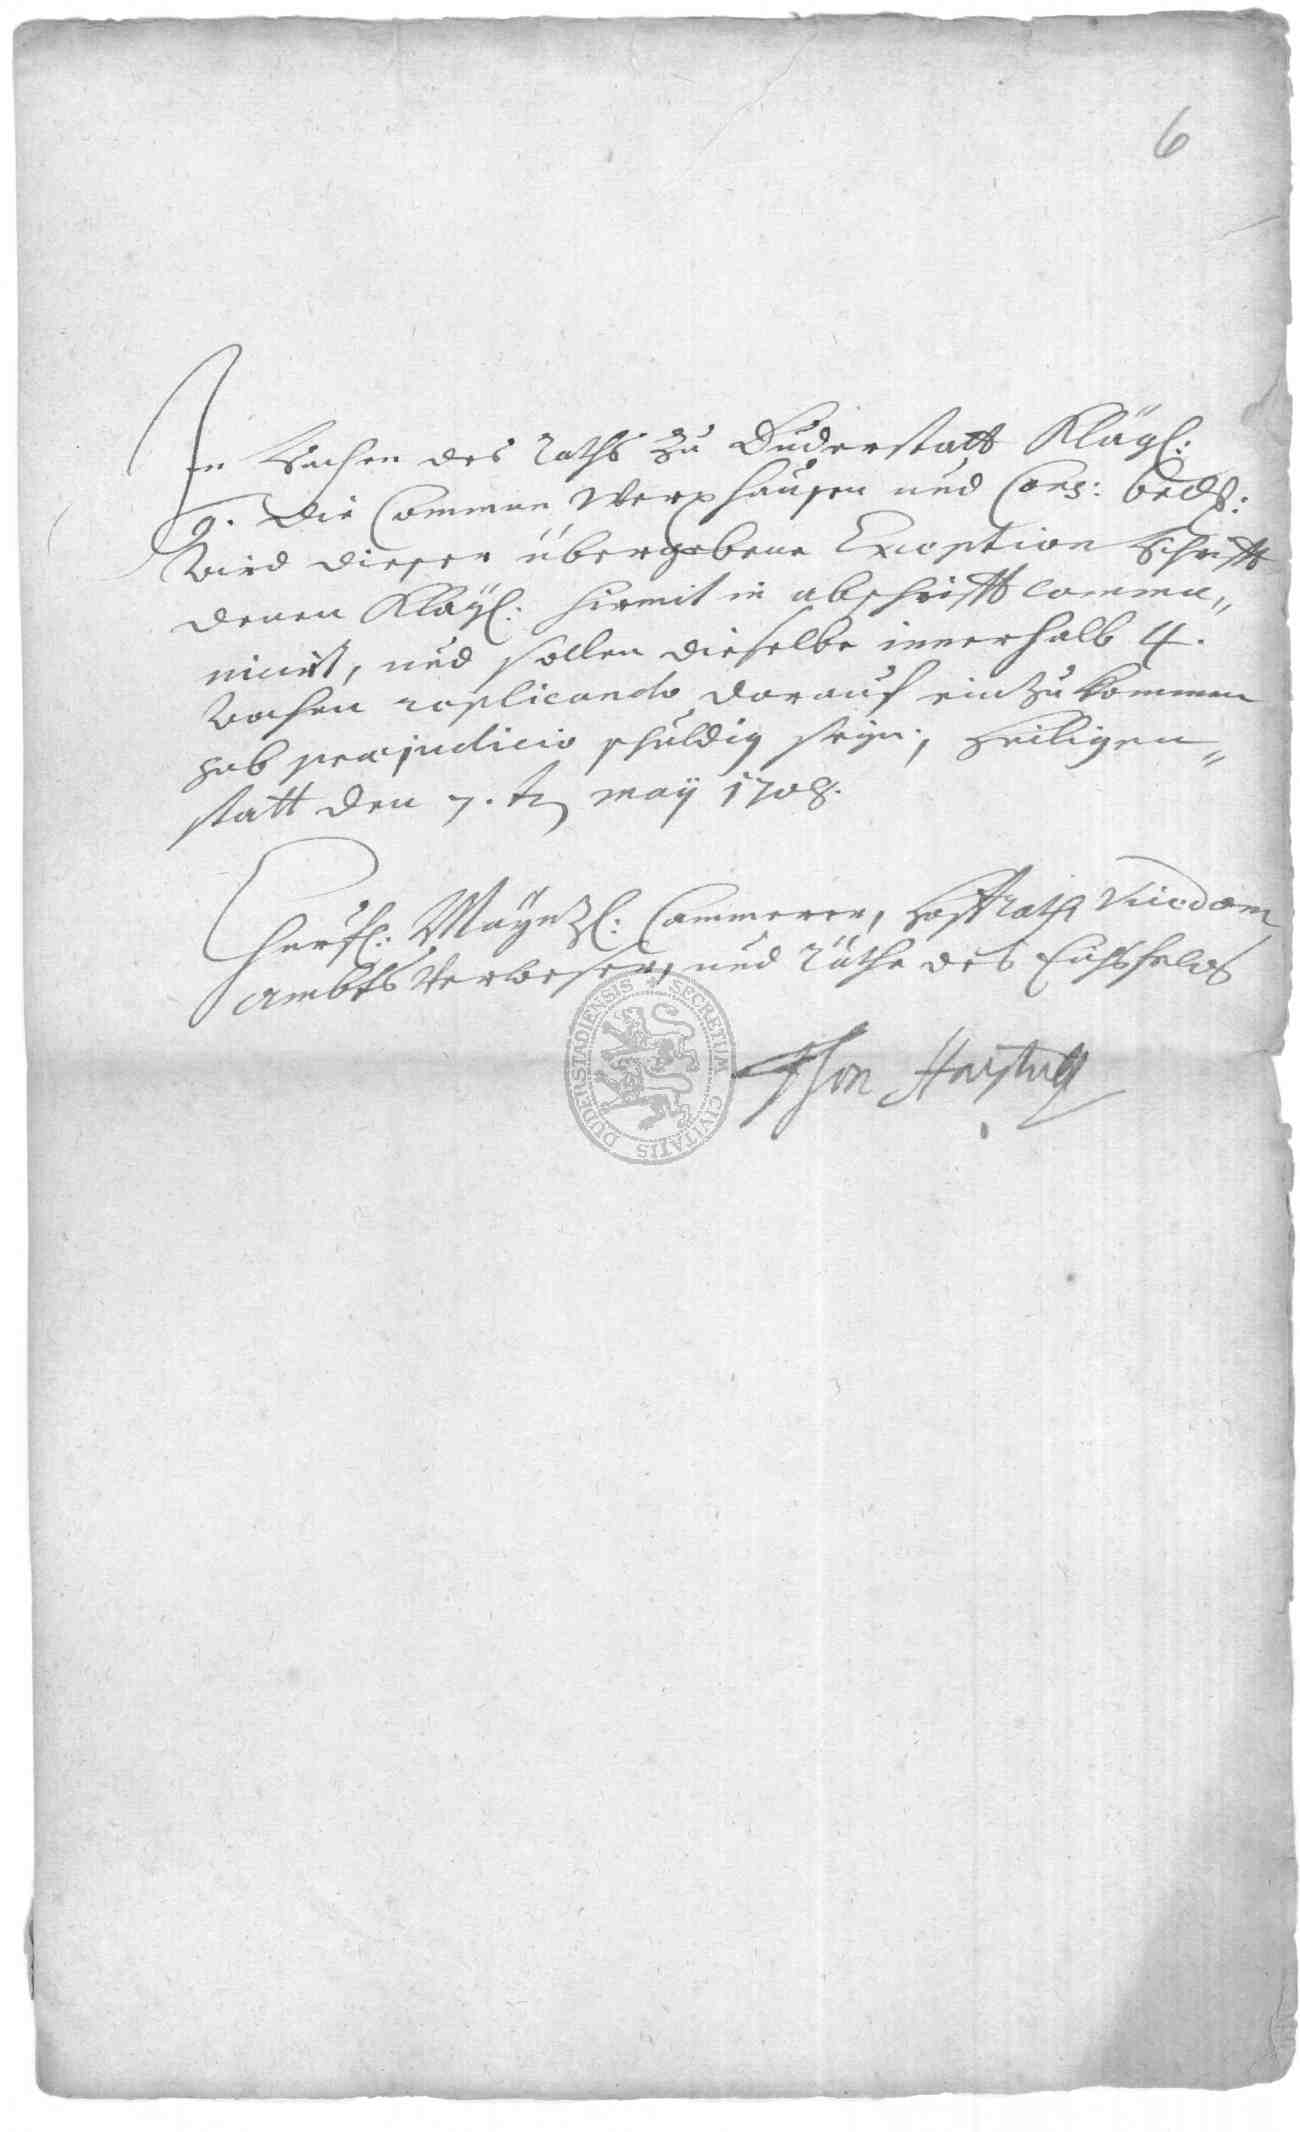 6
In Sachen des Raths zu Duderstatt Klägl:
g. die Commun Werxhausen und Cons: bekl:
wird dieser übergebene Exception Schrifft
denen Klägl: hiermit in abschrifft commu„
nicirt, und sollen dieselbe innerhalb 4.
wochen replicando darauf einzukommen
sub praejudicio schuldig seyn, Heiligen„
statt den 7. may 1708.
Churfl: Mayntzl: Cammerer, Hoffrath Vicedom
Ambts Verweser, und Räthe des Eichsfelds
SECRETUM CIVITATIS DUDERSTADIENSIS